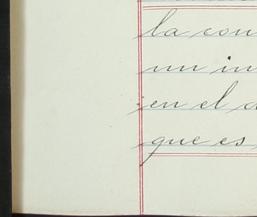 la con
un in
en el d
que es